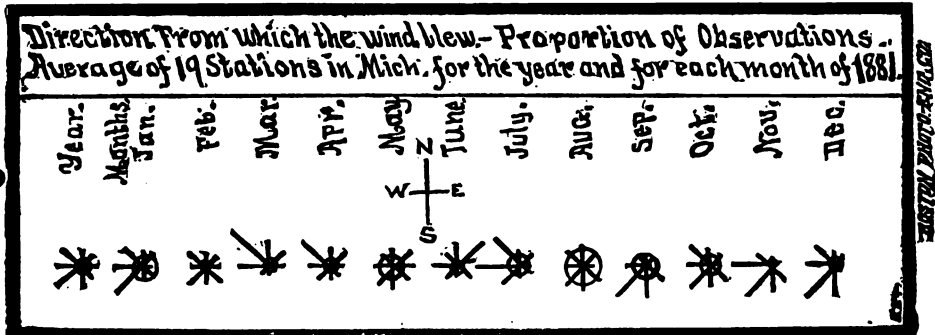 Direction From which the wind blew.- Proportion of Observations..
Average of 19 Stations in Mich. for the year and for each month of 1881.
Year. Months. Jan. Feb. Mar. Apr. May June July. Aug. Sep. Oct. Nov. Dec.
N
W E
S